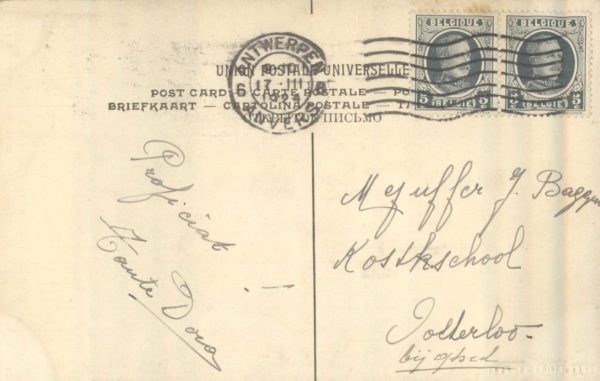 BELGIQUE BELGIQUE
5 5 5 5
BELGIE BELGIE
ANTWERPEN
6 6
17·III
ANVERS
UNION POSTALE UNIVERSELLE
POST CARD – CARTE POSTALE – PO
BRIEFKAART – CARTOLINA POSTALE – T
ПИСЬМО
Proficiat
!
Tante Dora
Mejuffer J. Baggen
Kostkschool
Oosterloo
bij Gheel